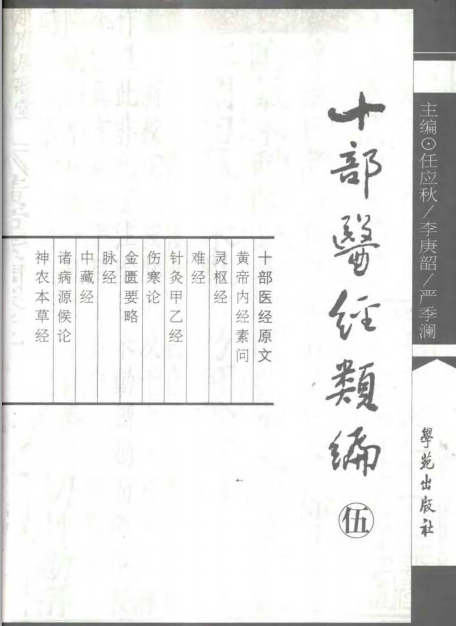 主编⊙任应秋/李庚韶/严季澜
學苑出版社
十部醫經類编
伍
十部医经原文
黄帝内经素问
灵枢经
难经
针灸甲乙经
伤寒论
金匮要略
脉经
中藏经
诸病源候论
神农本草经